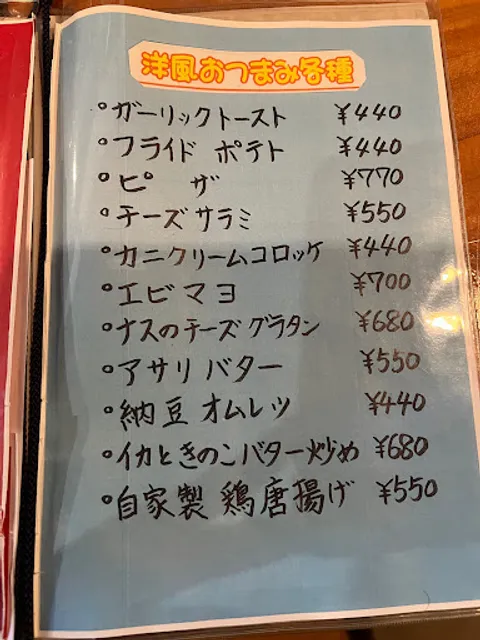 洋風おつまみ各種
°ガーリックトースト ¥440
°フライド ポテト ¥440
°ピ ザ ¥770
°チーズサラミ ¥550
°カニクリームコロッケ ¥440
°エビマヨ ¥700
°ナスのチーズグラタン ¥680
°アサリバター ¥550
°納豆オムレツ ¥440
°イカときのこバター炒め ¥680
°自家製 鶏唐揚げ ¥550